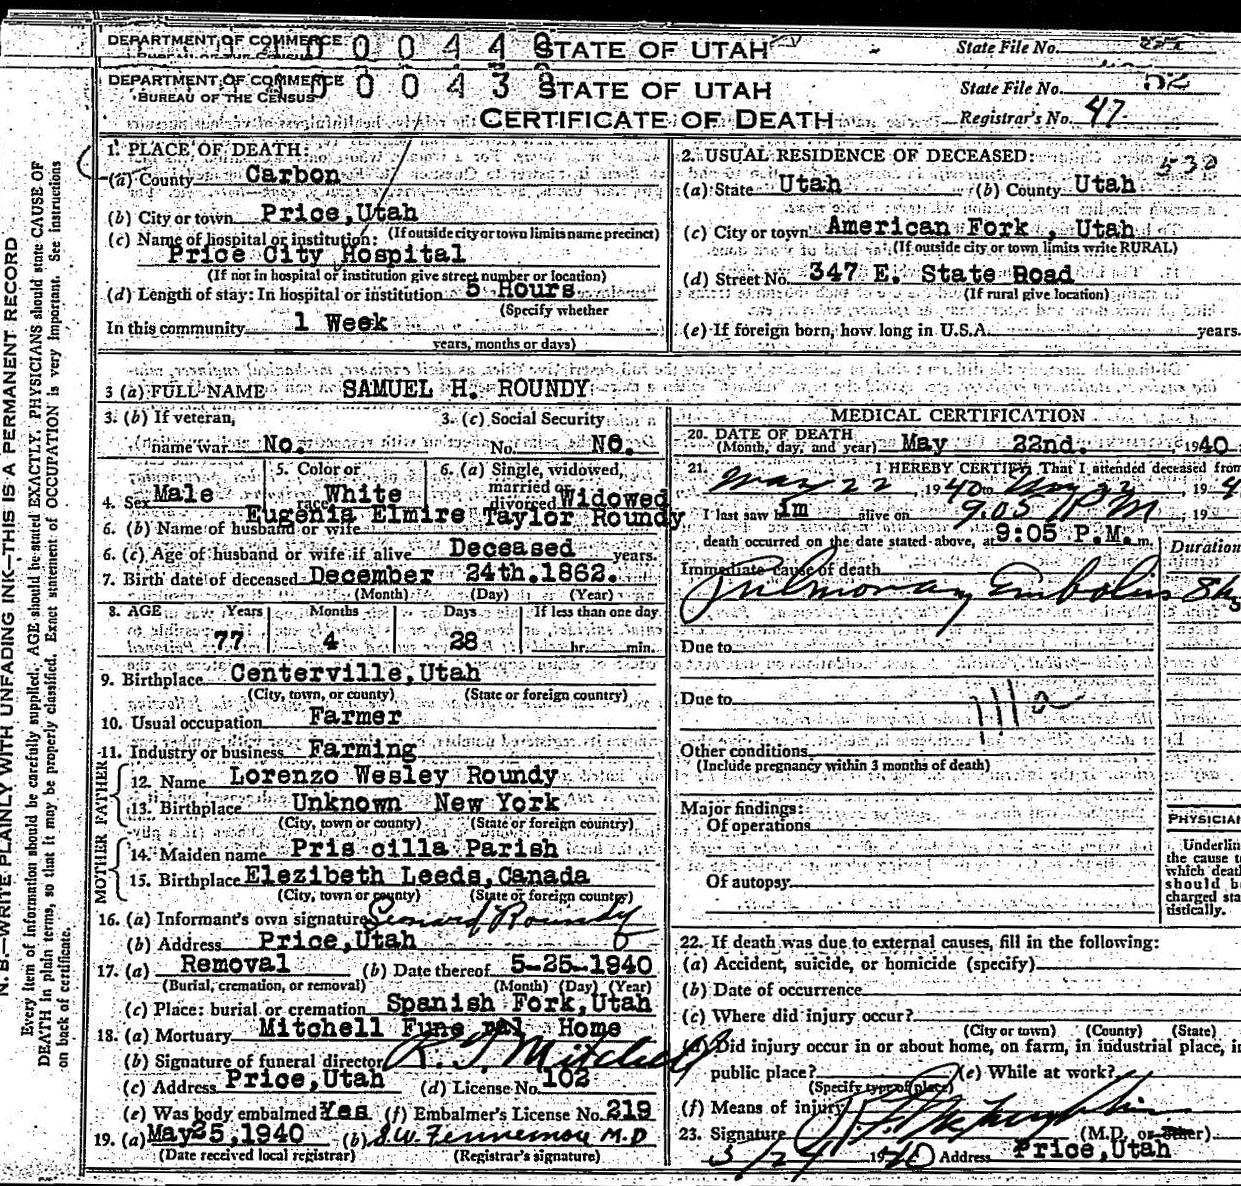 DEPARTMENT OF COMMERCE 0 0 4 4 STATE OF UTAH State File No.
DEPARTMENT OF COMMERCE 0 0 4 3 STATE OF UTAH State File No. 52
BUREAU OF THE CENSUS
CERTIFICATE OF DEATH Registrar's No. 47
N. B.—WRITE PLAINLY WITH UNFADING INK—THIS IS A PERMANENT RECORD
Every item of information should be carefully supplied. AGE should be stated EXACTLY. PHYSICIANS should state CAUSE OF
DEATH in plain terms, so that it may be properly classified. Exact statement of OCCUPATION is very important. See instructions
on back of certificate.
1. PLACE OF DEATH:
(a) County Carbon
(b) City or town Price,Utah
(If outside city or town limits name precinct)
(c) Name of hospital or institution:
Price City Hospital
(If not in hospital or institution give street number or location)
(d) Length of stay: In hospital or institution 5 Hours
(Specify whether
In this community 1 Week
years, months or days)
2. USUAL RESIDENCE OF DECEASED: 530
(a) State Utah (b) County Utah
(c) City or town American Fork , Utah
(If outside city or town limits write RURAL)
(d) Street No. 347 E. State Road
(If rural give location)
(e) If foreign born, how long in U.S.A. years.
3 (a) FULL NAME SAMUEL H. ROUNDY
3. (b) If veteran, 3. (c) Social Security
name war No. No. No.
4. Sex Male 5. Color or race White 6. (a) Single, widowed, married or divorced Widowed
Eugenia Elmire Taylor Roundy
6. (b) Name of husband or wife
6. (c) Age of husband or wife if alive Deceased years.
7. Birth date of deceased December 24th.1862.
(Month) (Day) (Year)
8. AGE Years Months Days If less than one day
77 4 28 hr. min.
9. Birthplace Centerville,Utah
(City, town, or county) (State or foreign country)
10. Usual occupation Farmer
11. Industry or business Farming
FATHER
12. Name Lorenzo Wesley Roundy
13. Birthplace Unknown New York
(City, town or county) (State or foreign country)
MOTHER
14. Maiden name Pris cilla Parish
15. Birthplace Elezibeth Leeds,Canada
(City, town or county) (State or foreign country)
16. (a) Informant's own signature Leonard Roundy
(b) Address Price,Utah
17. (a) Removal (b) Date thereof 5-25-1940
(Burial, cremation, or removal) (Month) (Day) (Year)
(c) Place: burial or cremation Spanish Fork,Utah
18. (a) Mortuary Mitchell Fune ral Home
(b) Signature of funeral director R. J. Mitchell
(c) Address Price,Utah (d) License No. 102
(e) Was body embalmed Yes (f) Embalmer's License No. 219
19. (a) May25,1940 (b) S.W. Fennemore M.D
(Date received local registrar) (Registrar's signature)
MEDICAL CERTIFICATION
20. DATE OF DEATH
(Month, day, and year) May 22nd. , 1940
21. I HEREBY CERTIFY, That I attended deceased from
May 22 , 1940 to May 22 , 194
I last saw im alive on 9:05 PM , 19
death occurred on the date stated above, at 9:05 P.M. m.
Immediate cause of death Duration
Pulmonary Embolus 8 h
Due to
Due to
111a
Other conditions
(Include pregnancy within 3 months of death)
Major findings:
Of operations
Of autopsy
PHYSICIAN
Underlin
the cause t
which deat
should b
charged sta
tistically.
22. If death was due to external causes, fill in the following:
(a) Accident, suicide, or homicide (specify)
(b) Date of occurrence
(c) Where did injury occur?
(City or town) (County) (State)
(d) Did injury occur in or about home, on farm, in industrial place, in
public place? (e) While at work?
(Specify type of place)
(f) Means of injury
23. Signature (M.D. or other)
5/24 1940 Address Price,Utah